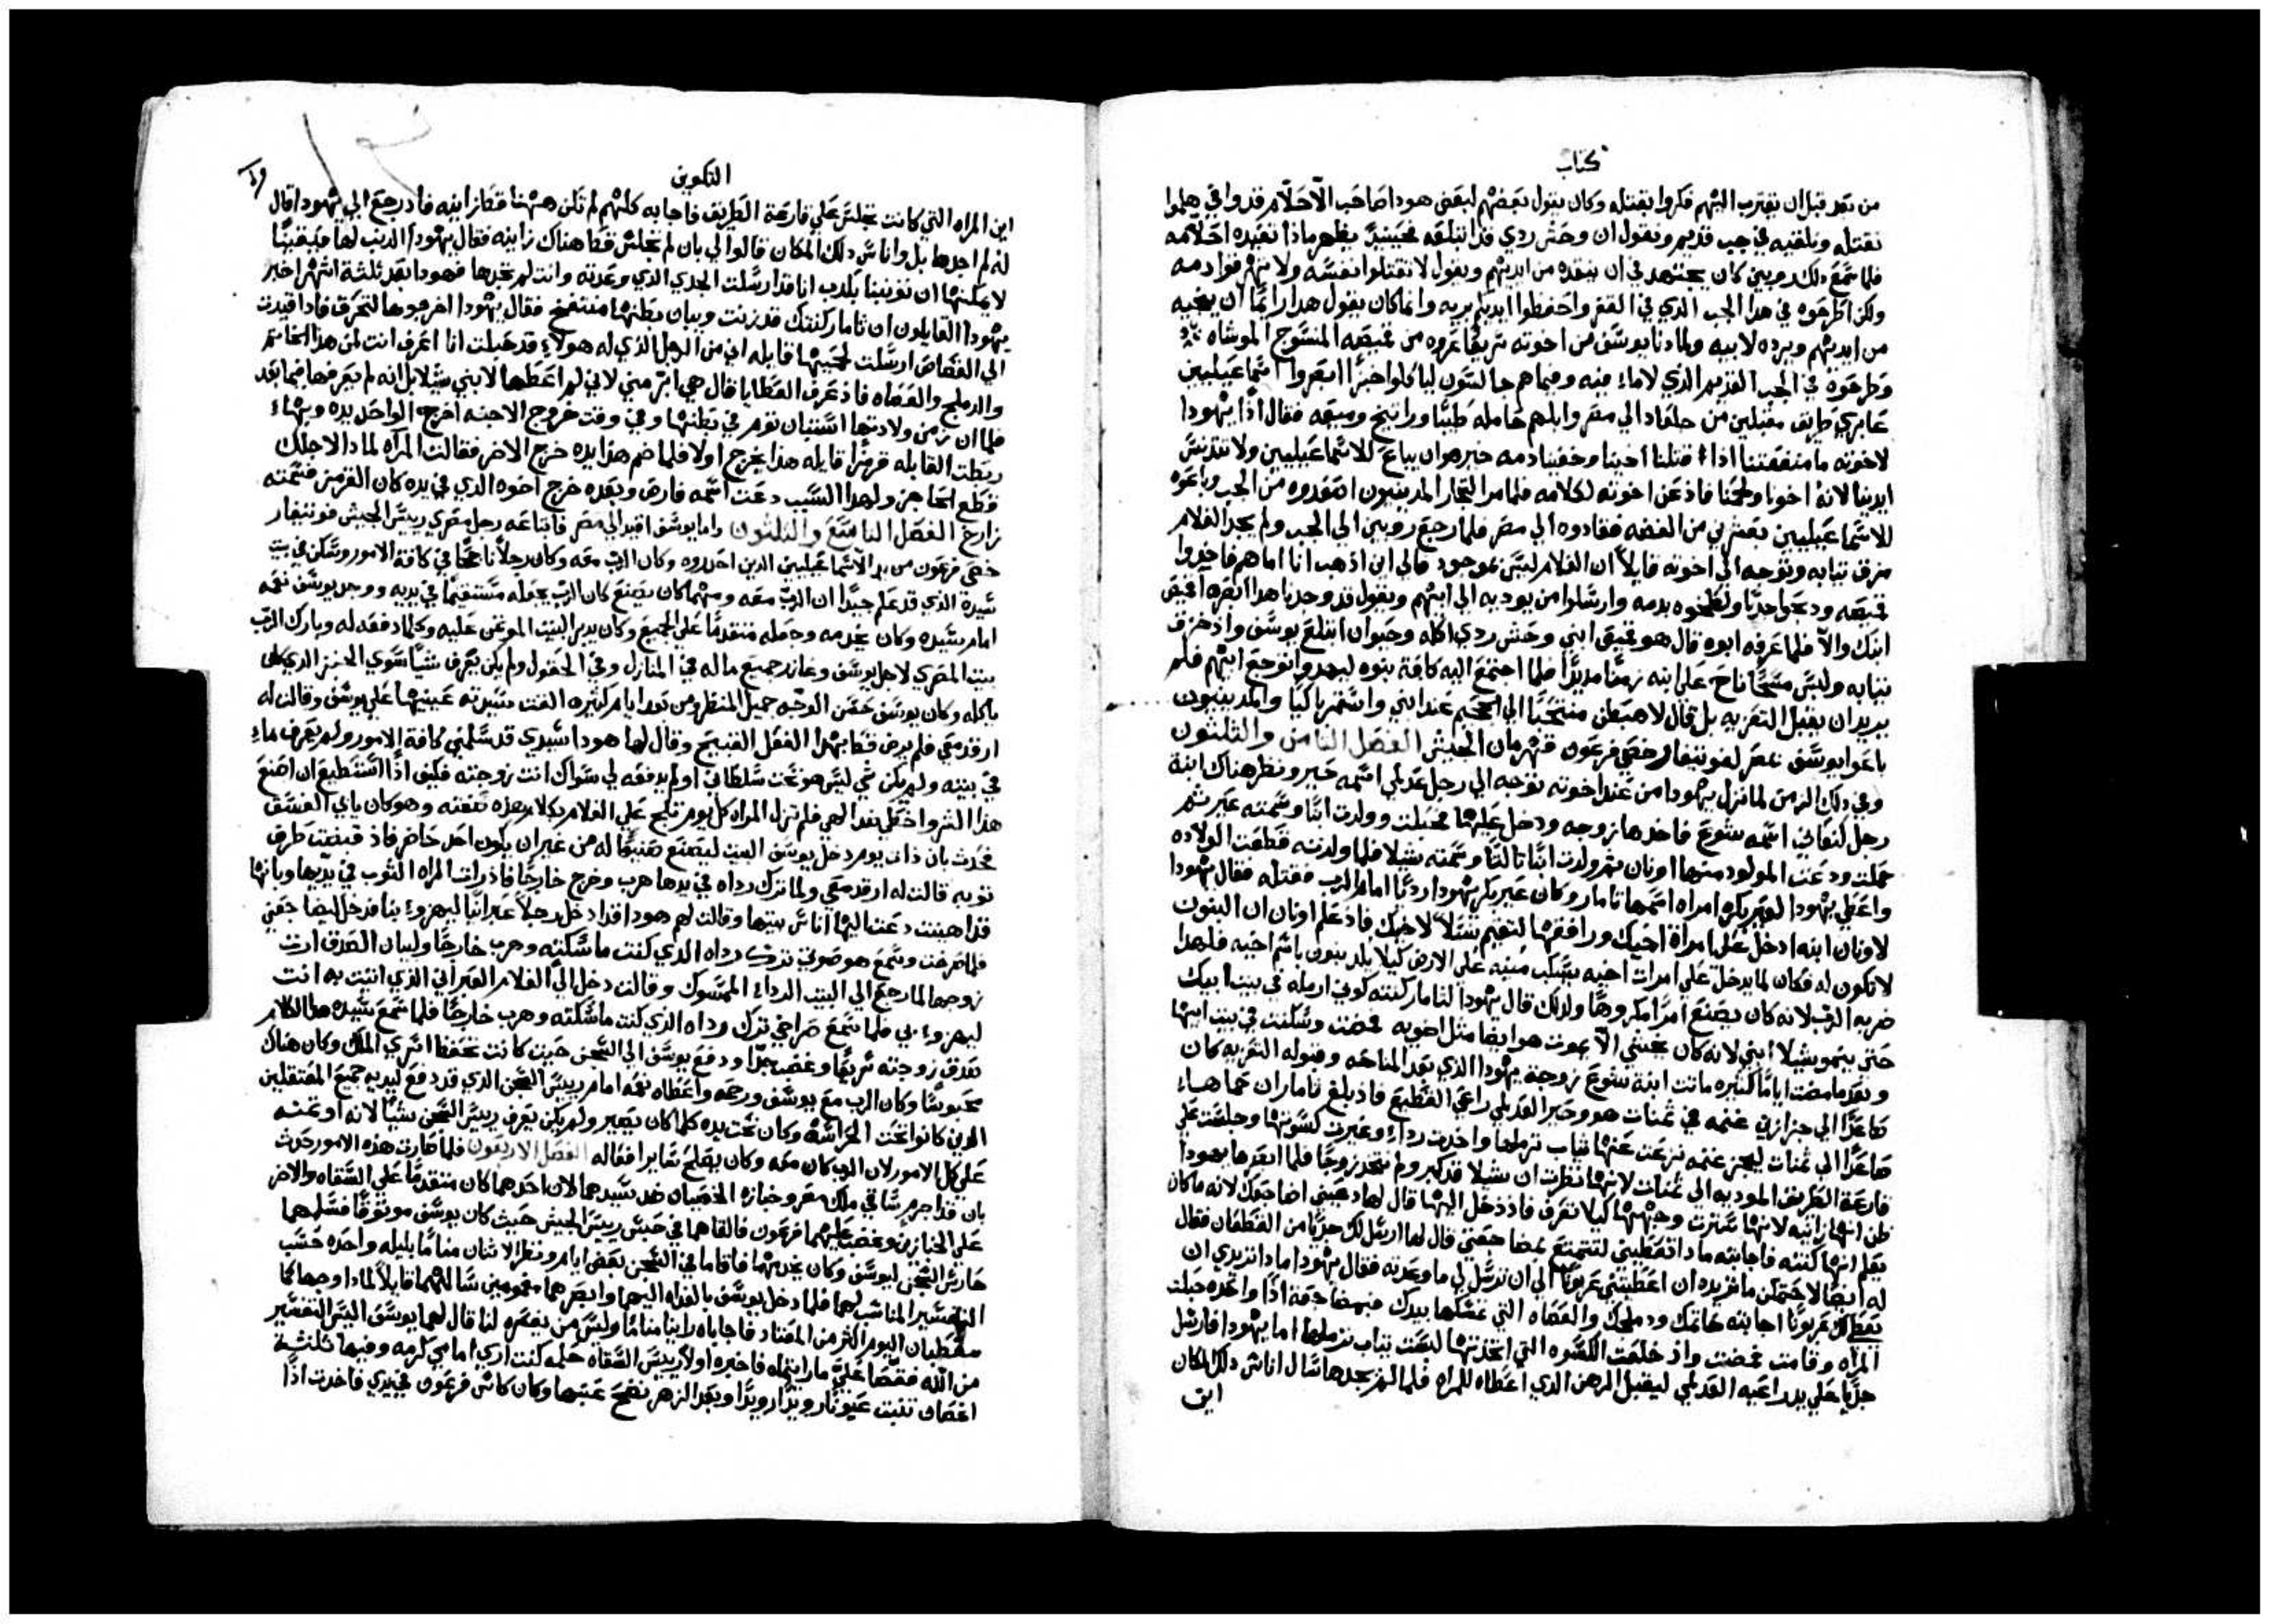 كتاب
من بعد قبل ان يقترب اليهم فكروا بقتله وكان يقول بعضهم لبعض هودا صاحب الاحلام قد وافي هلموا
نقتله ونلقيه في جب قديم ونقول ان وحش ردي قد ابتلعه فحينيدٍ يظهر ماذا تفيده احلامه
فلما سمع دلك روبين كان يجتهد في ان ينقده من ايديهم ويقول لا تقتلوا نفسه ولا يهرقوا دمه
ولكن اطرحوه في هدا الجب الدي في القفر واحفظوا ايديكم بريه وانما كان يقول هدا رايمًا ان ينجيه
من ايديهم ويرده لابيه ولما دنا يوسف من اخوته سريعًا عروه من قميصه المنسوج الموشاه
وطرحوه في الجب القديم الذي لا ماء فيه وفيما هم جالسون لياكلوا خبزًا ابصروا اسماعيليين
عابري طريق مقبلين من جلعاد الي مصر وابلهم حامله طيبًا وراتينج وميعه فقال اذًا يهودا
لاخوته ما منفعتنا اذا قتلنا اخينا وخفينا دمه خير هو ان يباع للاسماعيليين ولا تتدنس
ايدينا لانه اخونا ولحمنا فاذعن اخوته لكلامه فلما مر التجار المدينيون اصعدوه من الجب وباعوه
للاسماعيليين بعشرين من الفضه فقادوه الي مصر فلما رجع روبين الي الجب ولم يجد الغلام
مزق تيابه وتوجه الي اخوته قايلاً ان الغلام ليس بموجود فالي اين اذهب انا اما هم فاخدوا
قميصه ودبحوا جديًا ولطخوه بدمه وارسلوا من يودبه الي ابيهم ويقول قد وجدنا هدا ابصره اقميص
ابنك والا فلما عرفه ابوه قال هو قميص ابني وحش ردي اكله وحيوان ابتلع يوسف واذ خرق
تيابه ولبس مسحًا ناح علي ابنه زمنًا مديدًا فلما اجتمع اليه كافة بنوه ليهدوا توجع ابيهم فلم
يريد ان يقبل التعزيه بل قال لاهبطن منتحبًا الي الجحيم عند ابني واستمر باكيًا والمدينيون
باعوا يوسف بمصر لفوتيفار خصي فرعون قهرمان الجيش الفصل التامن والتلتون
وفي دلك الزمن لما نزل يهودا من عند اخوته توجه الي رجل عدلمي اسمه حير ونظر هناك ابنة
رجل كنعاني اسمه شوع فاخدها زوجه ودخل عليها فحبلت وولدت ابنًا وسمته عير تم
حملت ودعت المولود منها اونان تم ولدت ابنًا تالتًا وسمته شيلا فلما ولدته قطعت الولاده
واعطي يهودا لعير بكره امراه اسمها تامار وكان عير بكر يهودا رديًا امام الرب فقتله فقال يهودا
لاونان ابنه ادخل علي امراة اخيك ورافقها لتقيم نسلاً لاخيك فاذ علم اونان ان البنون
لا تكون له فكان لما يدخل علي امرات اخيه يسكب منيه علي الارض كيلا يلد بنون باسم اخيه فلهدا
ضربه الرب لانه كان يصنع امرًا مكروهًا ولدلك قال يهودا لتامار كنته كوني ارمله في بيت ابيك
حتي ينمو شيلا ابني لانه كان يخشي الا يموت هو ايضا مثل اخويه فمضت وسكنت في بيت ابيها
وبعد ما مضت ايامًا كثيره ماتت ابنة شوع زوجة يهودا الذي بعد المناحه وقبوله التعزيه كان
صاعدًا الي جزازين غنمه في تمنات هو وحير العدلمي راعي القطيع فاذ بلغ تامار ان حماها
صاعدًا الي تمنات ليجز غنمه نزعت عنها تياب ترملها واخدت رداءٍ وغيرت كسوتها وجلست علي
قارعة الطريق المودبه الي تمنات لانها نظرت ان شيلا قد كبر ولم تتخد زوجًا فلما ابصرها يهودا
ظن انها زانيه لانها سترت وجهها كيلا تعرف فاذ دخل اليها قال لها دعيني اضاجعك لانه ما كان
يعلم انها كنته فاجابته ماداتعطيني لتتمتع بمضاجعتي قال لها ارسل لك جديًا من القطعان فقال
له ايضًا لاحتملن ما تريده ان اعطيتني عربونًا الي ان ترسل لي ما وعدته فقال يهودا ماداتريدي ان
يعطي لك عربونًا اجابته خاتمك ودملجك والعصاه التي تمسكها بيدك فبمضاجعة اذًا واحده حبلت
المراه وقامت فمضت واذ خلعت الكسوه التي اتخدتها لبست تياب ترملها اما يهودا فارسل
جديًا علي يد راعيه العدلمي ليقبل الرهن الدي اعطاه للمراه فلما لم يجدها سال اناس دلك المكان
اين
التكوين
١٩
اين المراه التي كانت تجلس علي قارعة الطريق فاجابه كلهم لم تكن ههنا قط زانيه فاد رجع الي يهودا قال
له لم اجدها بل واناس دلك المكان قالوا لي بان لم تجلس قط هناك زانيه فقال يهودا الديب لها فبيقينًا
لا يمكنها ان توبنينا بكدب انا قد ارسلت الجدي الدي وعدته وانت لم تجدها فهودا بعد ثلثة اشهر اخبر
يهودا القايلون ان تامار كنتك قد زنت ويبان بطنها منتفخ فقال يهودا اخرجوها لتحرق فادا قيدت
الي القصاص ارسلت لحميها قايله اني من الرجل الذي له هولاءٍ قد حبلت انا اعرف انت لمن هدا الخاتم
والدملج والعصاه فاذ عرف العطايا قال هي ابر مني لاني لم اعطها لابني شيلا بل انه لم يعرفها فيما بعد
فلما ان زمن ولادتها استبان توم في بطنها وفي وقت خروج الاجنه اخرج الواحد يده وبهاءِ
ربطت القابله قرمزًا قايله هدا يخرج اولا فلما ضم هدا يده خرج الاخر فقالت المراه لمادا لاجلك
قطع الحاجز ولهدا السبب دعت اسمه فارص وبعده خرج اخوه الدي في يده كان القرمز فسمته
زارح الفصل التاسع والتلتون واما يوسف اقيد الي مصر فابتاعه رجل مصري رييس الجيش فوتيفار
خصي فرعون من يد الاسماعيليين الدين احدروه وكان الرب معه وكان رجلاً ناجحًا في كافة الامور وسكن في بيت
سيده الذي قد علم جيدًا ان الرب معه ومهما كان يصنع كان الرب يجعله مستقيمًا في يديه ووجد يوسف نعمه
امام سيده وكان يخدمه وجعله متقدمًا علي الجميع وكان يدبر البيت الموتمن عليه وكلما دفعه له وبارك الرب
بيت المصري لاجل يوسف وعاند جميع ماله في المنازل وفي الحقول ولم يكن يعرف شيًا سوي الخبز الدي كان
ياكله وكان يوسف حسن الوجه جميل المنظر ومن بعد ايام كثيره القت سيدته عينيها علي يوسف وقالت له
ارقد معي فلم يرض قط بهدا الفعل القبيح وقال لها هودا سيدي قد سلمني كافة الامور ولم يعرف ماءِ
في بيته ولم يكن شي ليس هو تحت سلطاني او لم يدفعه لي سواك انت زوجته فكيف اذًا استطيع ان اصنع
هدا الشر واخطي ضد الهي فلم تزل المراه كل يوم تلج علي الغلام بكلام هده صفته وهو كان يابي الفسق
فحدث بان ذات يوم دخل يوسف البيت ليصنع صنيعًا له من غير ان يكون احد حاضر فاذ قبضت طرف
توبه قالت له ارقد معي ولما ترك رداه في يدها هرب وخرج خارجًا فاذ رات المراه التوب في يديها وبانها
قد اهينت دعت اليها اناس بيتها وقالت لهم هودا قد ادخل رجلاً عبرانيًا ليهزوءِ بنا فدخل ليضاجعني
فلما صرخت وسمع هو صوتي ترك رداه الدي كنت ماسكته وهرب خارجًا ولبيان الصدق ارت
زوجها لما رجع الي البيت الرداءِ الممسوك وقالت دخل الي الغلام العبراني الذي اتيت به انت
ليهزوءِ بي فلما سمع صراخي ترك رداه الذي كنت ماسكته وهرب خارجًا فلما سمع سيده هدا الكلام
صدق زوجته سريعًا وغضب جدًا ودفع يوسف الي السجن حيث كانت تحفظ اسري الملك وكان هناك
محبوسًا وكان الرب مع يوسف ورحمه واعطاه نعمه امام رييس السجن الدي قد دفع ليديه جميع المعتقلين
الدين كانوا تحت الحراسه وكان تحت يده كلما كان يصير ولم يكن يعرف رييس السجن شيًا لانه اوتمنه
علي كل الامور لان الرب كان معه وكان يصلح تدابير افعاله الفصل الاربعون فلما صارت هده الامور حدث
بان قد اجرم ساقي ملك مصر وخبازه الخصيان ضد سيدهما لان احدهما كان متقدمًا علي السقاه والاخر
علي الخبازين وغضب عليهما فرعون فالقاهما في حبس رييس الجيش حيث كان يوسف موتوقًا فسلمهما
حارس السجن ليوسف وكان يخدمهما فاقاما في السجن بعض ايام ونظر الاتنان منامًا بليله واحده حسب
التفسير المناسب لهما فلما دخل يوسف بالغداه اليهما وابصرهما مغمومين سالهما قايلاً لمادا وجهاكما
معبطان اليوم اكثر من المعتاد فاجاباه راينا منامًا وليس من يفسره لنا قال لهما يوسف اليس التفسير
من الله فقصا علي ما رايتماه فاخبره اولاً رييس السقاه حلمه كنت اري امامي كرمه وفيها ثلثة
اغصان تنبت عيونًا رويدًا رويدًا وبعد الزهر نضج عنبها وكان كاس فرعون في يدي فاخدت اذًا